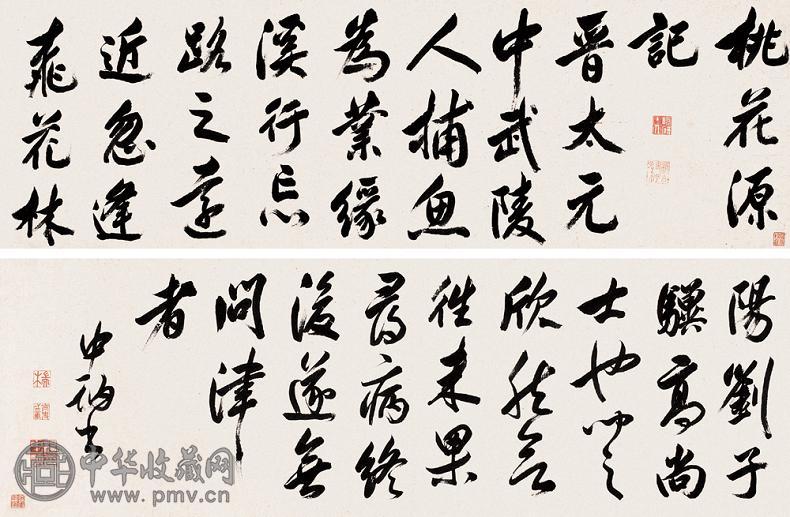 桃花源
記
晉太元
中武陵
人捕魚
為業緣
溪行忘
路之遠
近忽逢
桃花林
陽劉子
驥高尚
士也聞之
欣然
往未果
尋病終
後遂無
問津
者
中华收藏网
www.pmv.cn